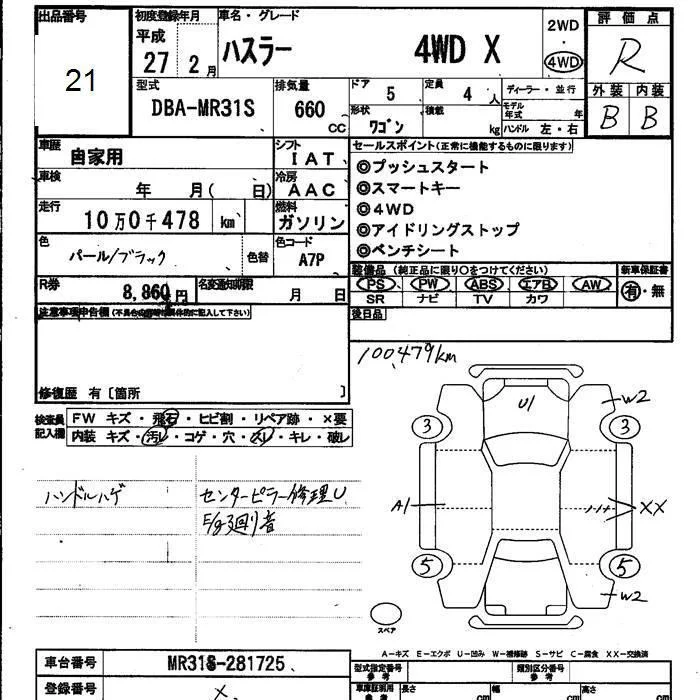 出品番号
21
初度登録年月
平成
27 2月
車名・グレード
ハスラー 4WD X
2WD
・
4WD
評価点
R
外装 内装
B B
型式
DBA-MR31S
排気量
660 cc
ドア
5
定員
4 人
形状
ワゴン
積載
kg
ディーラー・並行
モデル年式 年
ハンドル 左・右
車歴
自家用
シフト
IAT
車検
年 月( 日)
冷房
AAC
走行
10万0千478 km
燃料
ガソリン
色
パール/ブラック
色替
色コード
A7P
R券
8,860円
名変通知期限
月 日
セールスポイント(正常に機能するものに限ります)
◎プッシュスタート
◎スマートキー
◎4WD
◎アイドリングストップ
◎ベンチシート
装備品 (純正品に限り○をつけてください)
新車保証書
PS PW ABS エアB AW
有・無
SR ナビ TV カワ
後日品
注意事項申告欄(不具合箇所等を具体的に記入して下さい)
修復歴 有〔箇所 〕
検査員記入欄
FW キズ・飛石・ヒビ割・リペア跡・×要
内装 キズ・汚レ・コゲ・穴・スレ・キレ・破レ
ハンドルハゲ
センターピラー修理U
F/g廻り音
100,479km
U1
W2
3
3
A1
XX
5
5
W2
スペア
A-キズ E-エクボ U-凹み W-補修跡 S-サビ C-腐食 XX-交換済
車台番号
MR31S-281725
登録番号
×
型式指定番号
参考
類別区分番号
参考
長さ cm
幅 cm
高さ cm